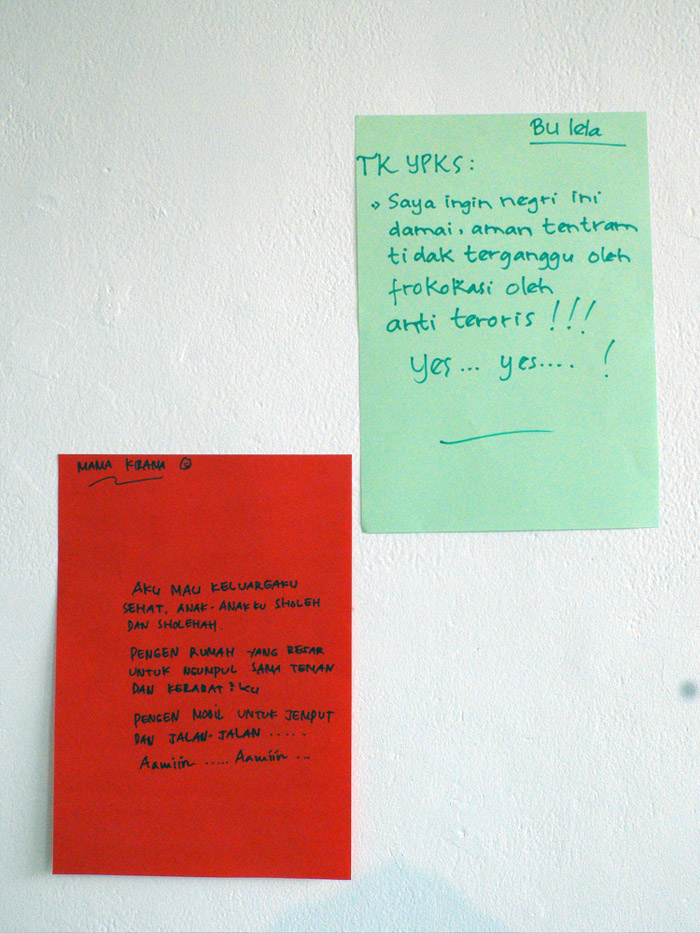 Bu lela
TK YPKS:
» Saya ingin negri ini
damai, aman tentram
tidak terganggu oleh
frokokasi oleh
anti teroris !!!
Yes... yes.... !
MAMA KIRANA
AKU MAU KELUARGAKU
SEHAT, ANAK-ANAKKU SHOLEH
DAN SHOLEHAH.
PENGEN RUMAH YANG BESAR
UNTUK NGUMPUL SAMA TEMAN
DAN KERABAT²KU
PENGEN MOBIL UNTUK JEMPUT
DAN JALAN-JALAN .....
Aamiin ..... Aamiin ...